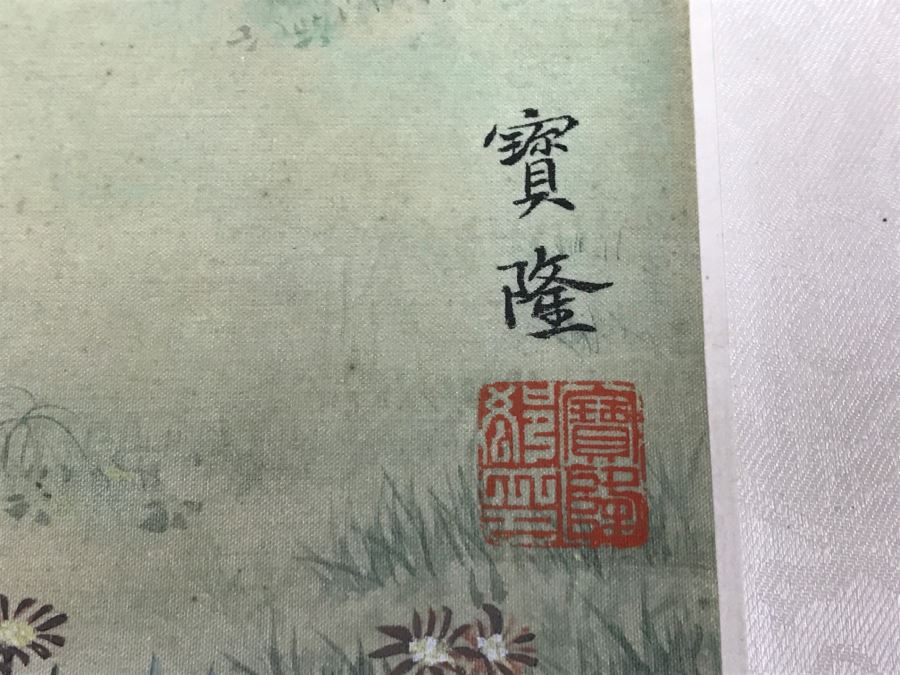 寶隆
寶隆